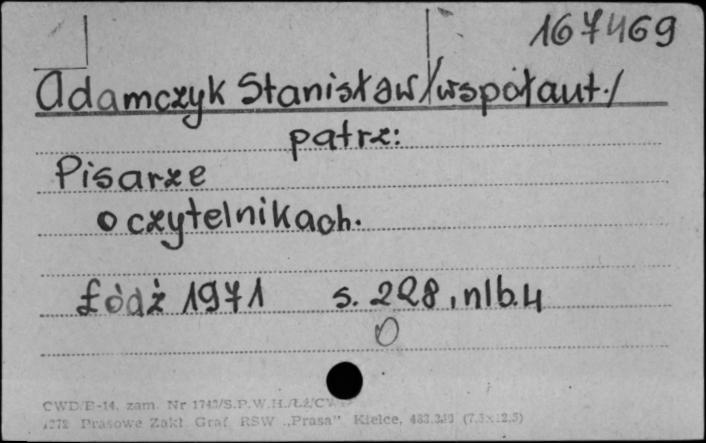 167469
Adamczyk Stanisław /współaut./
patrz:
Pisarze
o czytelnikach.
Łódź 1971 s. 228, nlb. 4
0
CWD/B-14, zam. Nr 1743/S.P.W.H./Łż/
1272 Prasowe Zakł. Graf. RSW „Prasa” Kielce,